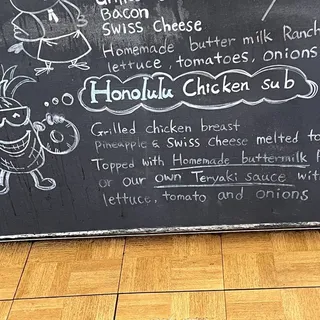 Bacon
Swiss Cheese
Homemade butter milk Ranch
lettuce, tomatoes, onions
Honolulu Chicken sub
Grilled chicken breast
Pineapple & Swiss Cheese melted to
Topped with Homemade buttermilk
or our own Teryaki sauce with
lettuce, tomato and onions